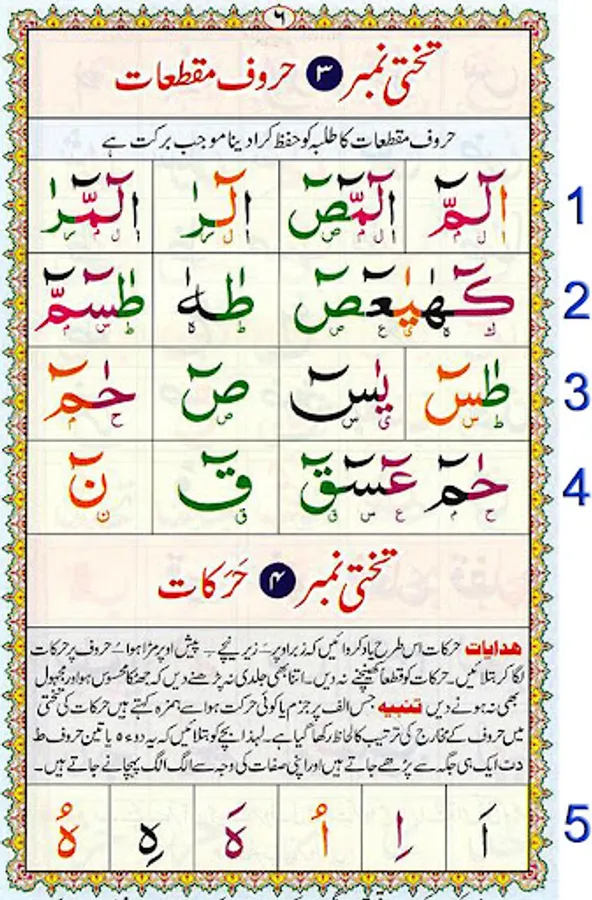 ٦
تختی نمبر ۳ حروف مقطعات
حروف مقطعات کا طلبہ کو حفظ کرا دینا موجب برکت ہے
الٓمّٓ الٓمّٓصٓ الٓرٰ الٓمّٓرٰ 1
ا ل م ا ل م ص ا ل ر ا ل م ر
کٓھٰیٰعٓصٓ طٰہٰ طٰسٓمّٓ 2
ك ہ ی ع ص ط ہ ط س م
طٰسٓ یٰسٓ صٓ حٰمٓ 3
ط س ی س ص ح م
حٰمٓ عٓسٓقٓ قٓ نٓ 4
ح م ع س ق ق ن
تختی نمبر ۴ حَرَکات
ھدایات حرکات اس طرح یاد کروائیں کہ زبر اوپر ـَ زیر نیچے ـِ پیش اوپر مڑا ہوا ـُ حروف پر حرکات
لگا کر بتلائیں۔ حرکات کو قطعاً کھینچنے نہ دیں۔ اتنا بھی جلدی نہ پڑھنے دیں کہ جھٹکا محسوس ہو اور مجہول
بھی نہ ہونے دیں تنبیه جس الف پر جزم یا کوئی حرکت ہو اسے ہمزہ کہتے ہیں حرکات کی تختی
میں حروف کے مخارج کی ترتیب کا لحاظ رکھا گیا ہے۔ لہذا بچے کو بتلائیں کہ یہ دو ء ہ یا تین حروف ط
د ت ایک ہی جگہ سے پڑھے جاتے ہیں اور اپنی صفات کی وجہ سے الگ الگ پہچانے جاتے ہیں۔
اَ اِ اُ ہَ ہِ ہُ 5